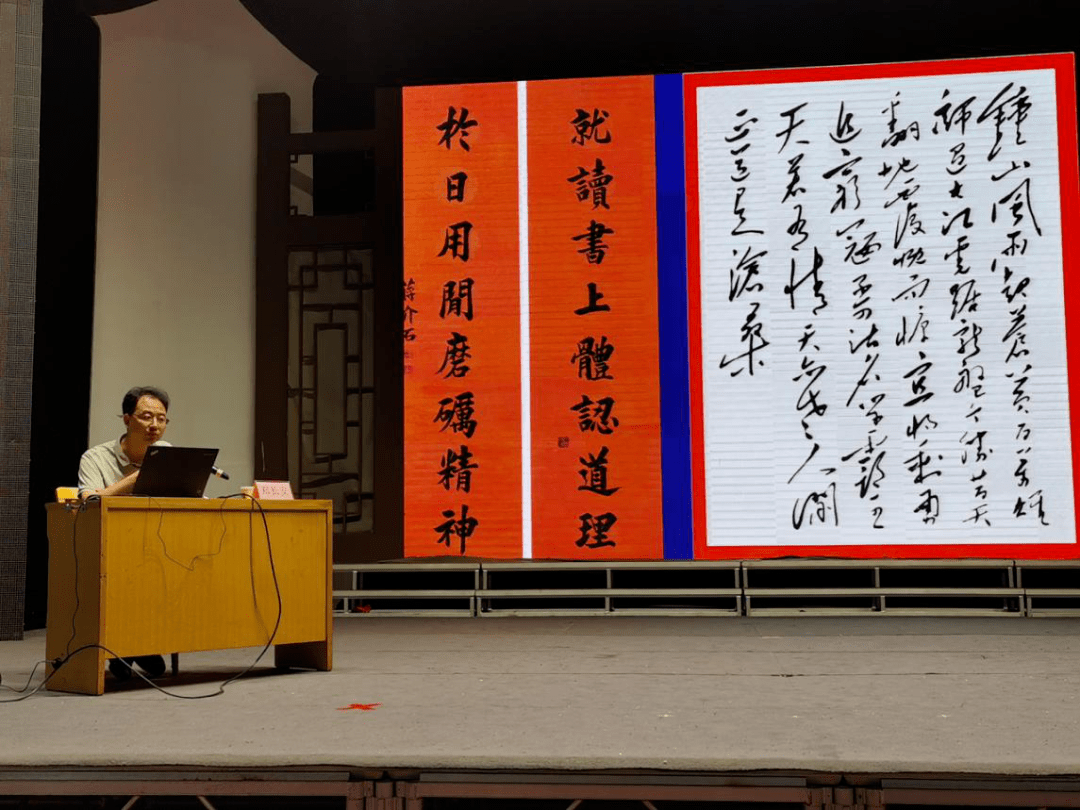 鍾山風雨起蒼黄百万雄
師过大江虎踞龙盘今胜昔天
翻地覆慨而慷宜将剩勇
追窮寇不可沽名学霸王
天若有情天亦老人间
正道是滄桑
就讀書上體認道理
於日用閒磨礪精神
蔣介石